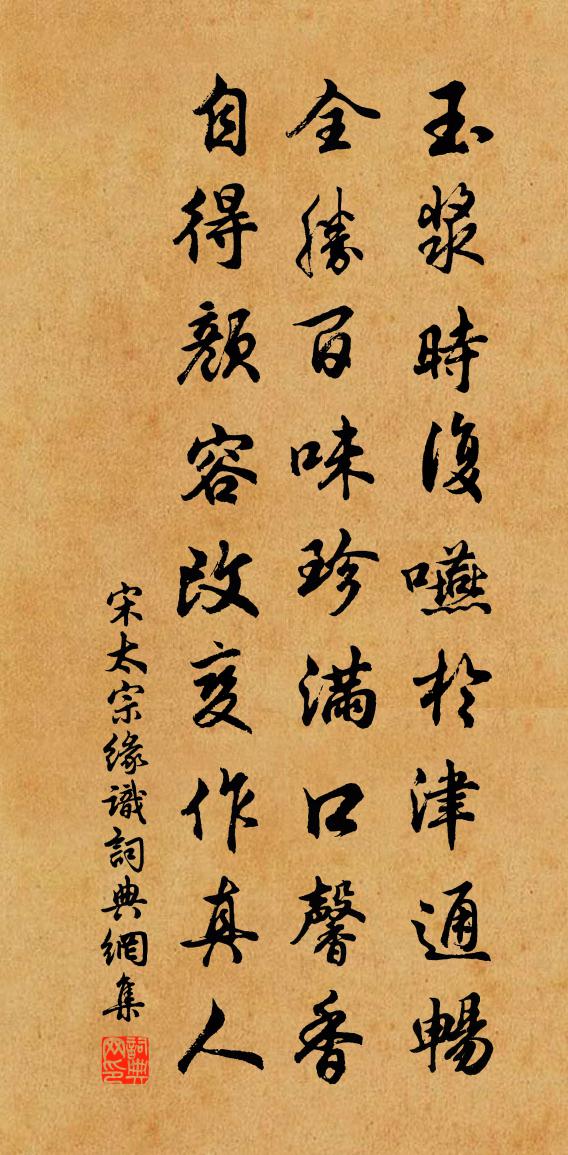 玉漿時復嚥於津通暢
全勝百味珍滿口馨香
自得顏容改变作真人
宋太宗緣識詞典網集
詞典网印